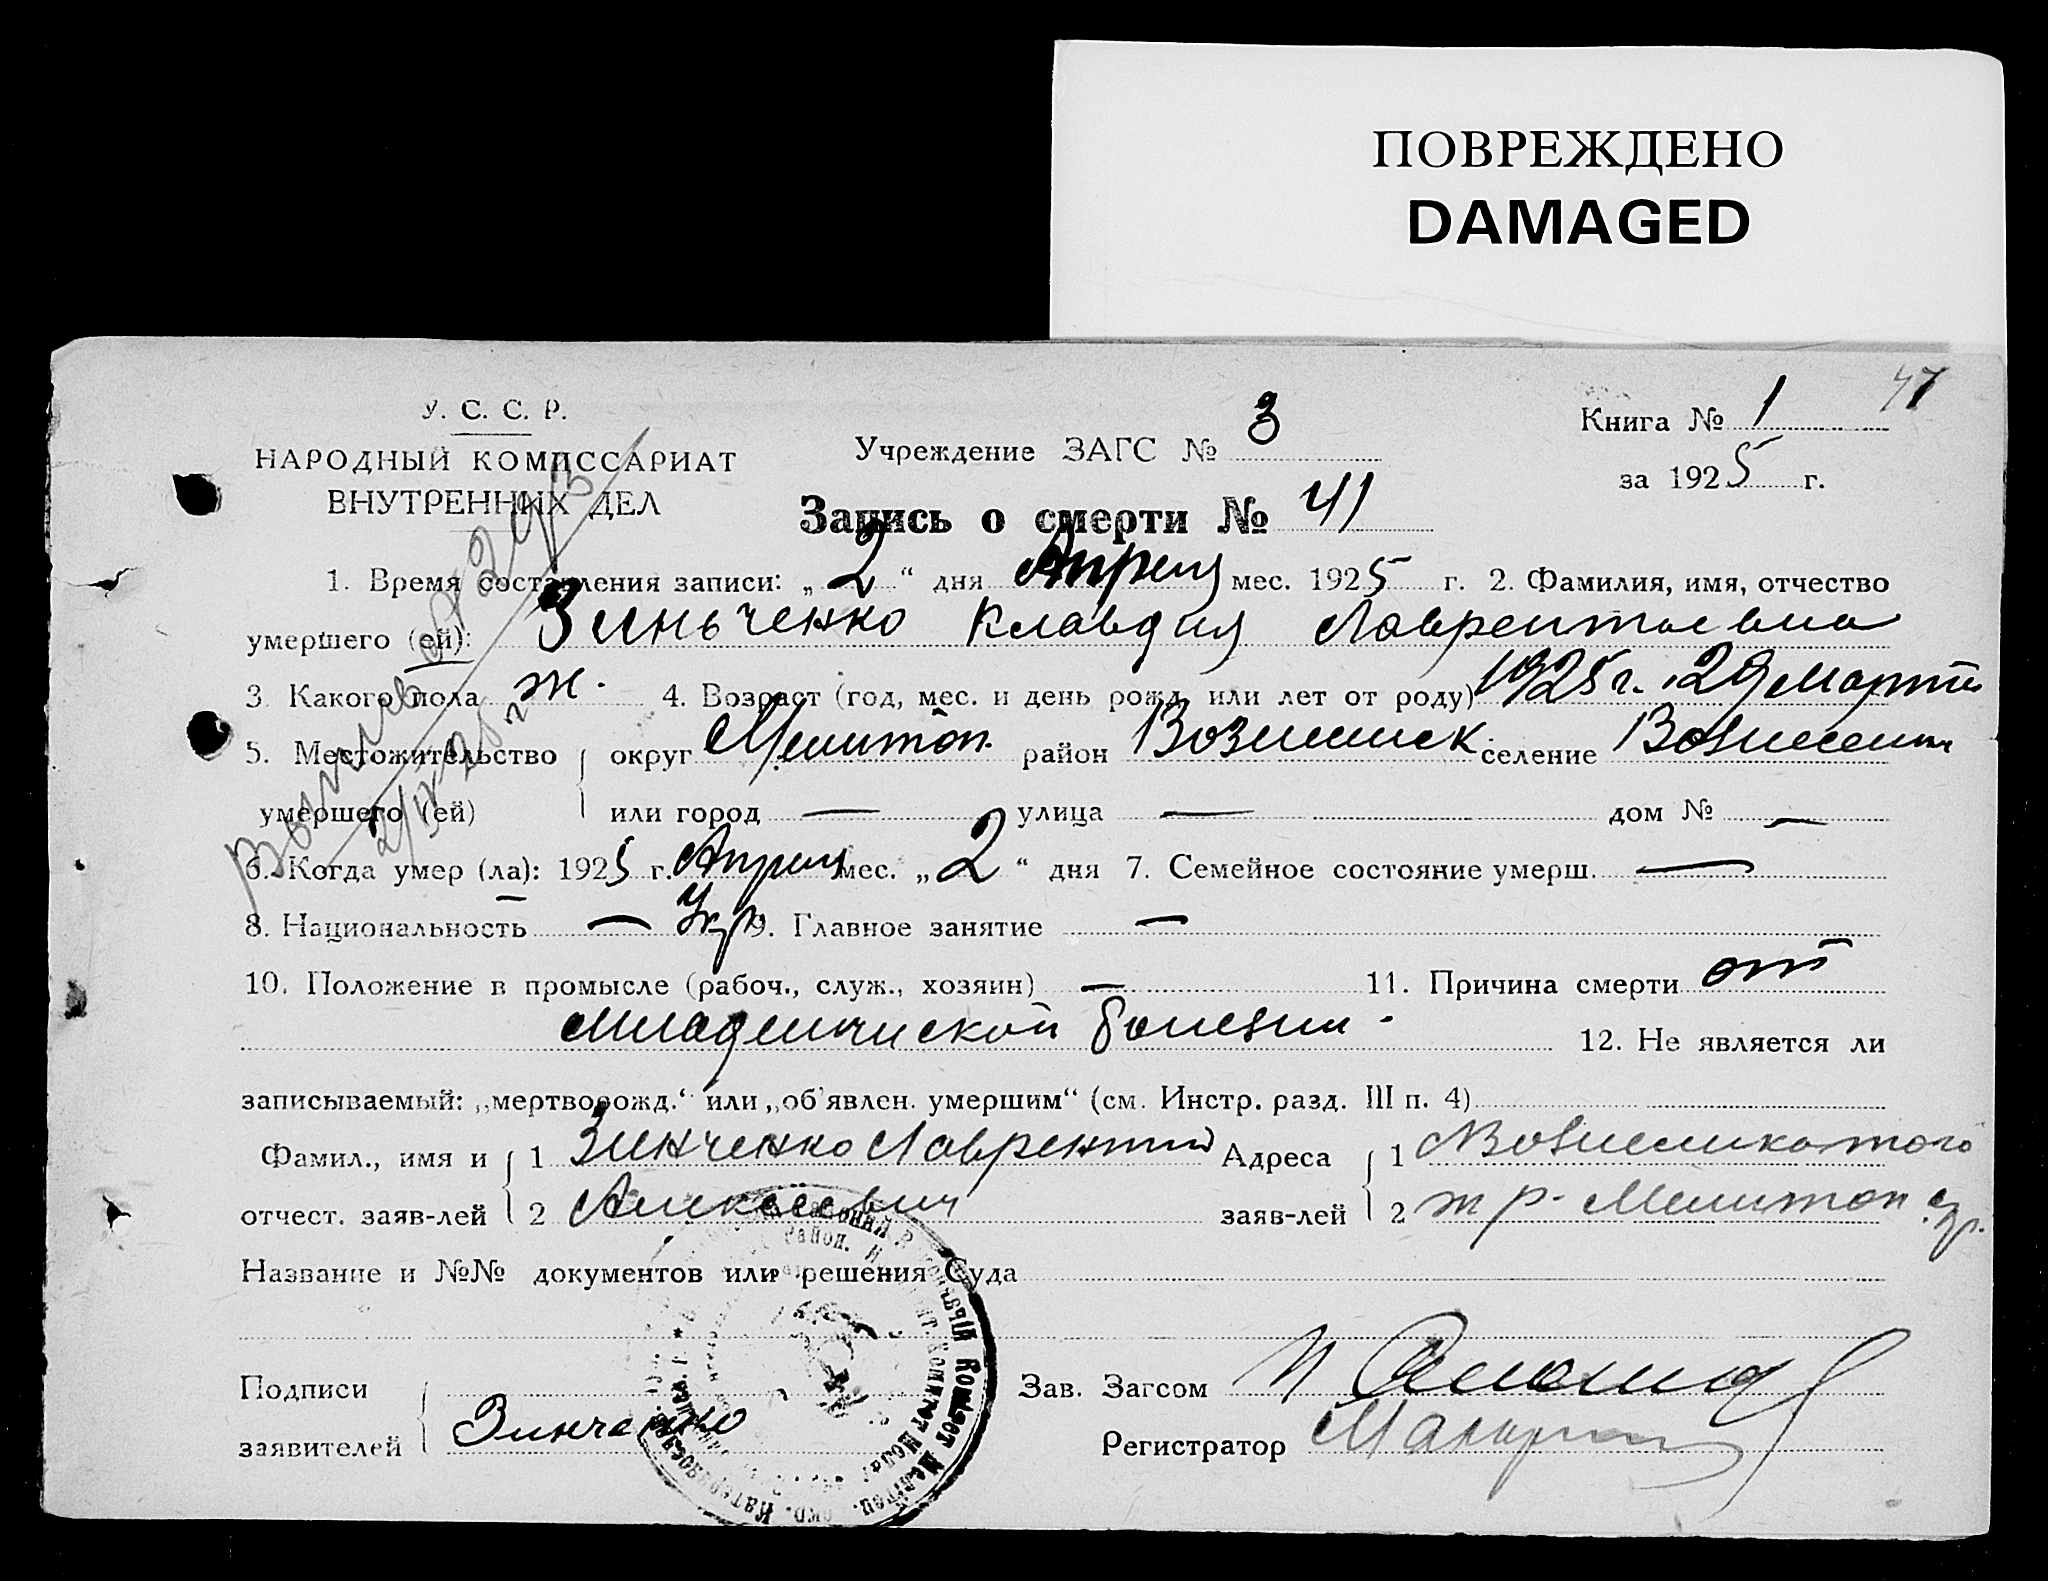 ПОВРЕЖДЕНО
DAMAGED
47
У. С. С. Р.
НАРОДНЫЙ КОМИССАРИАТ
ВНУТРЕННИХ ДЕЛ
Учреждение ЗАГС № 3
Книга № 1
за 1925 г.
Запись о смерти № 41
1. Время составления записи: „2“ дня Апреля мес. 1925 г. 2. Фамилия, имя, отчество
умершего (ей): Зиньченко Клавдия Лаврентьевна
3. Какого пола ж. 4. Возраст (год, мес. и день рожд. или лет от роду) 1925 г. 29 Марта
5. Местожительство округ Мелитоп. район Вознесенск селение Вознесенск
умершего (ей) или город — улица — дом № —
6. Когда умер (ла): 1925 г. Апреля мес. „2“ дня 7. Семейное состояние умерш. —
8. Национальность — Укр 9. Главное занятие —
10. Положение в промысле (рабоч., служ., хозяин) — 11. Причина смерти от
Младенческой болезни - 12. Не является ли
записываемый: „мертворожд.“ или „об'явлен. умершим“ (см. Инстр. разд. III п. 4)
Фамил., имя и 1 Зинченко Лаврентий Адреса 1
отчест. заяв-лей 2 Алексеевич заяв-лей 2 Мелитоп
Название и №№ документов или решения Суда
Подписи Зав. Загсом
заявителей Зинченко Регистратор